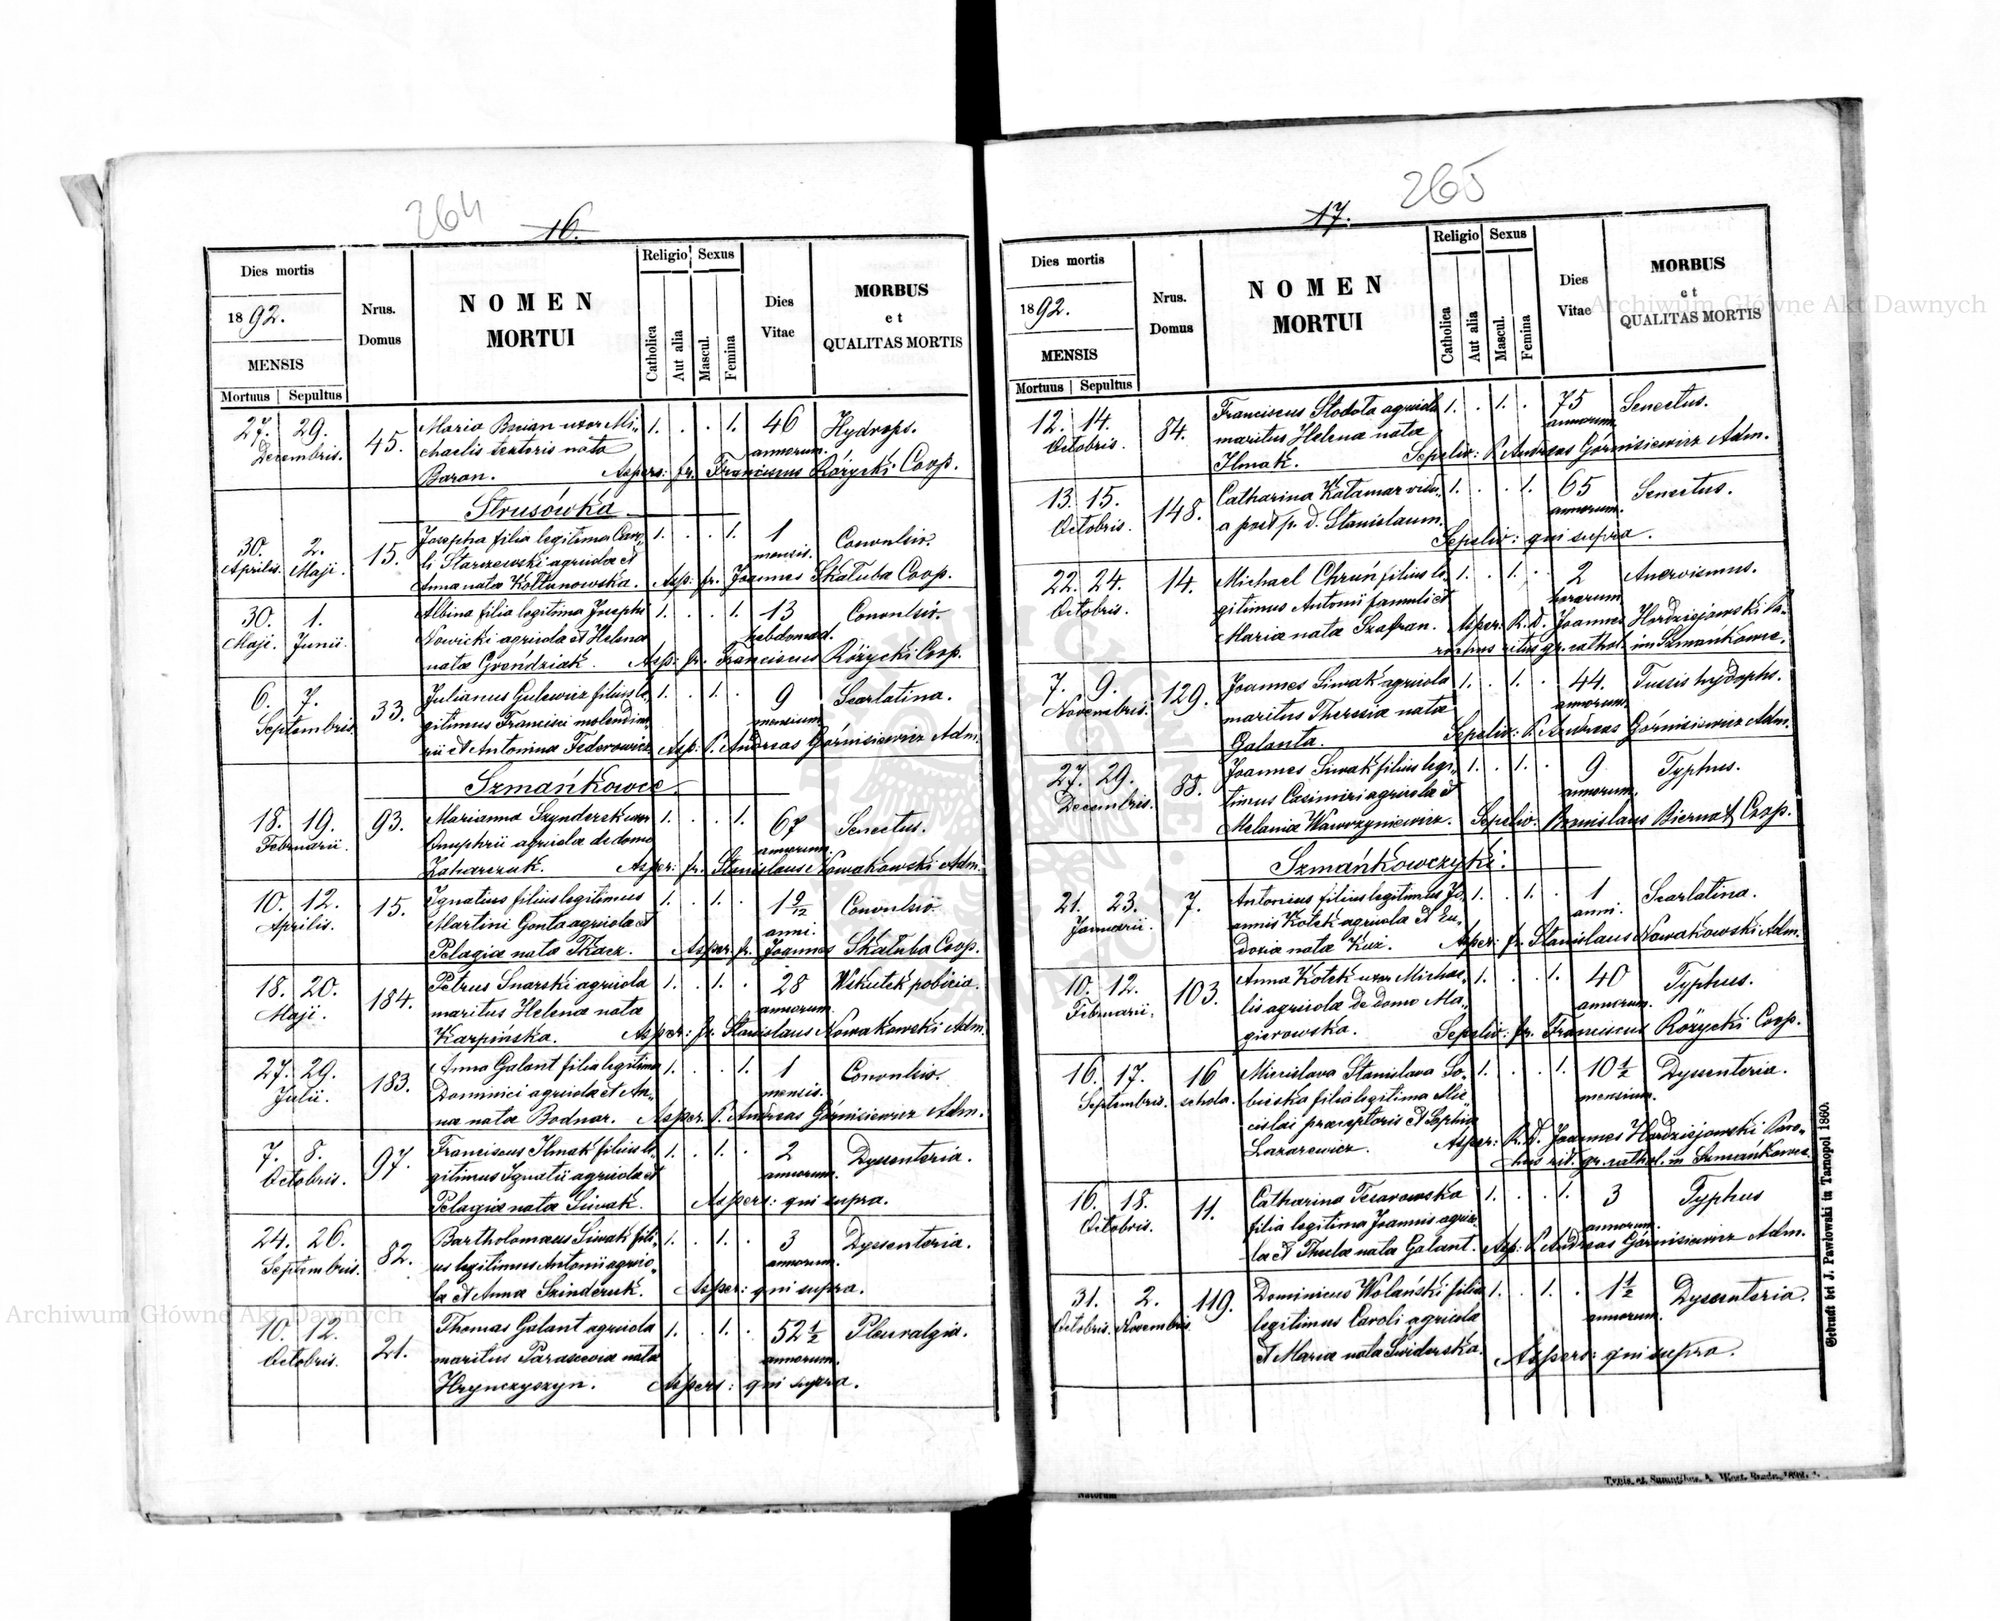 264
16.
Dies mortis
1892.
MENSIS
Mortuus | Sepultus
Nrus. Domus
NOMEN MORTUI
Religio
Catholica
Aut alia
Sexus
Mascul.
Femina
Dies Vitae
MORBUS et QUALITAS MORTIS
27. 29. 45. Maria Bocian uxor Mi- 1. . . 1. 46 Hydrops.
Decembris. chaelis textoris nata annorum.
Baran. Aspers: fr. Franciscus Różycki Coop.
Strusówka
30. 2. 15. Josepha filia legitima Caro- 1. . . 1. 1 Convulsio.
Aprilis. Maji. li Starzewski agricola et mensis.
Anna nata Kołtunowska. Asp: fr. Joannes Skałuba Coop.
30. 1. Albina filia legitima Josephi 1. . . 1. 13 Convulsio.
Maji. Junii. Nowicki agricola et Helena hebdomad.
nata Grońdziak. Asp: fr. Franciscus Różycki Coop.
6. 7. 33. Julianus Gulewicz filius le- 1. . 1. . 9 Scarlatina.
Septembris gitimus Francisci molendina- mensium
rii et Antonina Federowicz. Asp: P. Andreas Górnisiewicz Adm.
Szmańkowce.
18. 19. 93. Marianna Szynderuk uxor 1. . . 1. 67 Senectus.
Februarii. Onuphrii agricola de domo annorum.
Zaharczuk. Asper: fr. Stanislaus Nowakowski Adm.
10. 12. 15. Ignatius filius legitimus 1. . 1. . 1 9/12 Convulsio
Aprilis. Martini Gonta agricola et anni.
Pelagia nata Tkacz. Asper: fr. Joannes Skałuba Coop.
18. 20. 184. Petrus Snarski agricola 1. . 1. . 28 Wskutek pobicia.
Maji. maritus Helenæ nata annorum.
Karpińska. Asper: fr. Stanislaus Nowakowski Adm.
27. 29. 183. Anna Galant filia legitima 1. . . 1. 1 Convulsio.
Julii. Dominici agricola et An- mensis.
na nata Bodnar. Asper. P. Andreas Górnisiewicz Adm.
7. 8. 97. Franciscus Ilmak filius le- 1. . 1. . 2 Dyssenteria.
Octobris. gitimus Ignatii agricola et annorum.
Pelagia nata Siwak. Aspers: qui supra.
24. 26. 82. Bartholomaeus Siwak fili- 1. . 1. . 3 Dyssenteria.
Septembris. us legitimus Antonii agrico- annorum.
la et Anna Szinderuk. Asper: qui supra.
10. 12. 21. Thomas Galant agricola 1. . 1. . 52 1/2 Pleuralgia.
Octobris. maritus Parascevia nata annorum.
Hrynczyszyn. Aspers: qui supra.
265
17.
Dies mortis
1892.
MENSIS
Mortuus | Sepultus
Nrus. Domus
NOMEN MORTUI
Religio
Catholica
Aut alia
Sexus
Mascul.
Femina
Dies Vitae
MORBUS et QUALITAS MORTIS
12. 14. 84. Franciscus Słodota agricola 1. . 1. . 75 Senectus.
Octobris. maritus Helenæ nata annorum.
Ilmak. Sepeliv: P. Andreas Górnisiewicz Adm.
13. 15. 148. Catharina Katamar vidu- 1. . . 1. 65 Senectus.
Octobris. a post p. d. Stanislaum. annorum.
Sepeliv: qui supra.
22. 24. 14. Michael Chruń filius le- 1. . 1. . 2 Anervismus.
Octobris. gitimus Antonii famuli et horarum
Maria nata Szafran. Asper: R. D. Joannes Hordziejowski Pa-
rochus ritus gr. cathol. in Szmańkowce.
7. 9. 129. Joannes Siwak agricola 1. . 1. . 44. Tussis hydrops.
Novembris. maritus Theresiæ nata annorum.
Galanta. Sepeliv: P. Andreas Górnisiewicz Adm.
27. 29. 88. Joannes Siwak filius legi- 1. . 1. . 9 Typhus.
Decembris. timus Casimiri agricola et annorum.
Melania Wawrzyniewicz. Sepeliv: Bronislaus Biernat Coop.
Szmańkowczyki.
21. 23. 7. Antonius filius legitimus Jo- 1. . 1. . 1 Scarlatina.
Januarii. annis Kotek agricola et Eu- anni.
doxia nata Kuz. Asper: fr. Stanislaus Nowakowski Adm.
10. 12. 103. Anna Kotek uxor Michae- 1. . . 1. 40 Typhus.
Februarii. lis agricola de domo Ma- annorum.
gierowska. Sepeliv: fr. Franciscus Różycki Coop.
16. 17. 16 Miecislava Stanislava So- 1. . . 1. 10 1/2 Dyssenteria.
Septembris. schola. bieska filia legitima Mie- mensium.
cislai praeceptoris et Sophia
Lazarewicz. Asper: R. D. Joannes Hordziejowski Paro-
chus rit. gr. cathol. in Szmańkowce.
16. 18. 11. Catharina Tesarowska 1. . . 1. 3 Typhus
Octobris. filia legitima Joannis agrico- annorum.
la et Thecla nata Galant. Asp: P. Andreas Górnisiewicz Adm.
31. 2. 119. Dominicus Wolański filius 1. . 1. . 1 1/2 Dyssenteria.
Octobris. Novembris legitimus Caroli agricola annorum.
et Maria nata Swiderska. Aspers: qui supra.
Gedruckt bei J. Pawłowski in Tarnopol 1860.
Archiwum Główne Akt Dawnych
Archiwum Główne Akt Dawnych